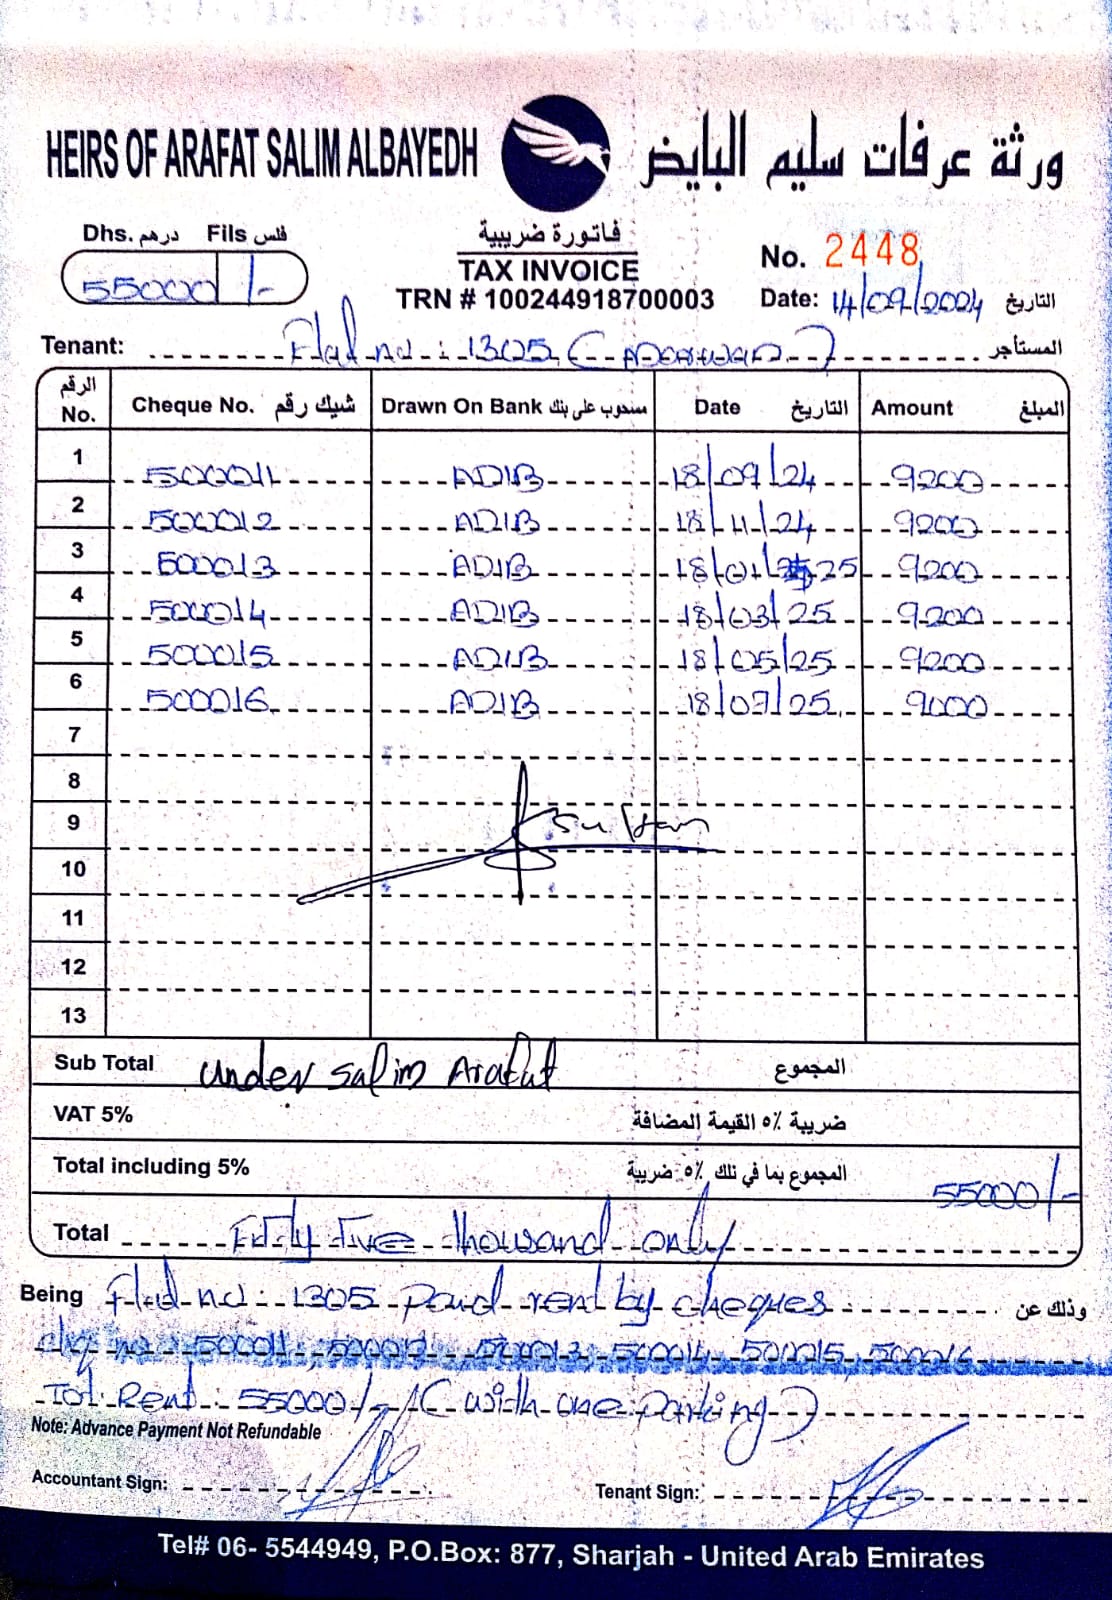 HEIRS OF ARAFAT SALIM ALBAYEDH
ورثة عرفات سليم البايض
Dhs. درهم Fils فلس
55000 /-
فاتورة ضريبية
TAX INVOICE
TRN # 100244918700003
No. 2448
Date: 14/09/2024 التاريخ
Tenant: Flat no: 1305 المستأجر
الرقم No. Cheque No. شيك رقم Drawn On Bank مسحوب على بنك Date التاريخ Amount المبلغ
1 500011 ADIB 18/09/24 9200
2 500012 ADIB 18/11/24 9200
3 500013 ADIB 18/01/25 9200
4 500014 ADIB 18/03/25 9200
5 500015 ADIB 18/05/25 9200
6 500016 ADIB 18/07/25 9000
7
8
9 Sultan
10
11
12
13
Sub Total under Salim Arafat المجموع
VAT 5% ضريبة ٥٪ القيمة المضافة
Total including 5% المجموع بما في ذلك ٥٪ ضريبة 55000/-
Total Fifty Five thousand only
Being Flat no: 1305 Paid rent by cheques وذلك عن
chq no: 500011, 500012, 500013, 500014, 500015, 500016
Tot: Rent: 55000/- (with one parking)
Note: Advance Payment Not Refundable
Accountant Sign: Tenant Sign:
Tel# 06- 5544949, P.O.Box: 877, Sharjah - United Arab Emirates